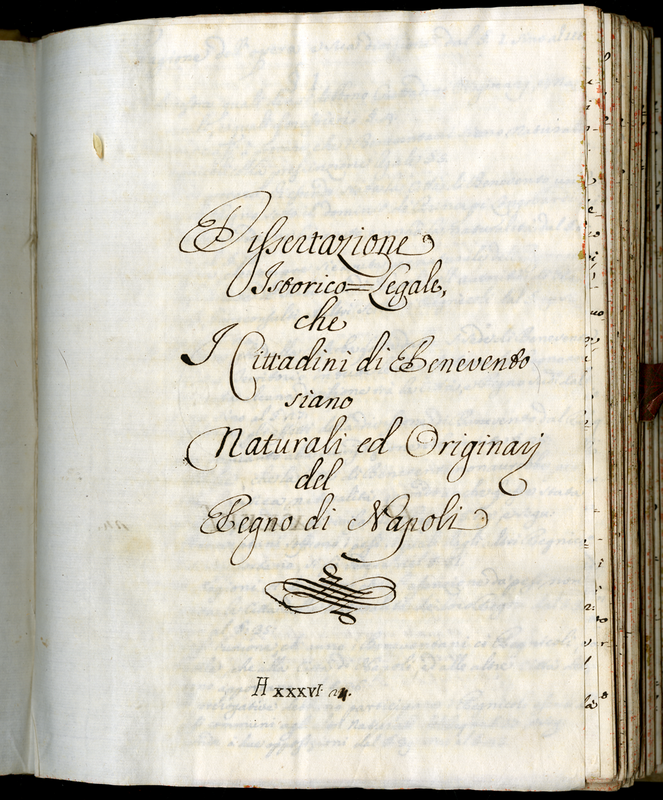 Dissertazione
Istorico=Legale,
che
I Cittadini di Benevento
siano
Naturali ed Originarj
del
Regno di Napoli
H XXXVI